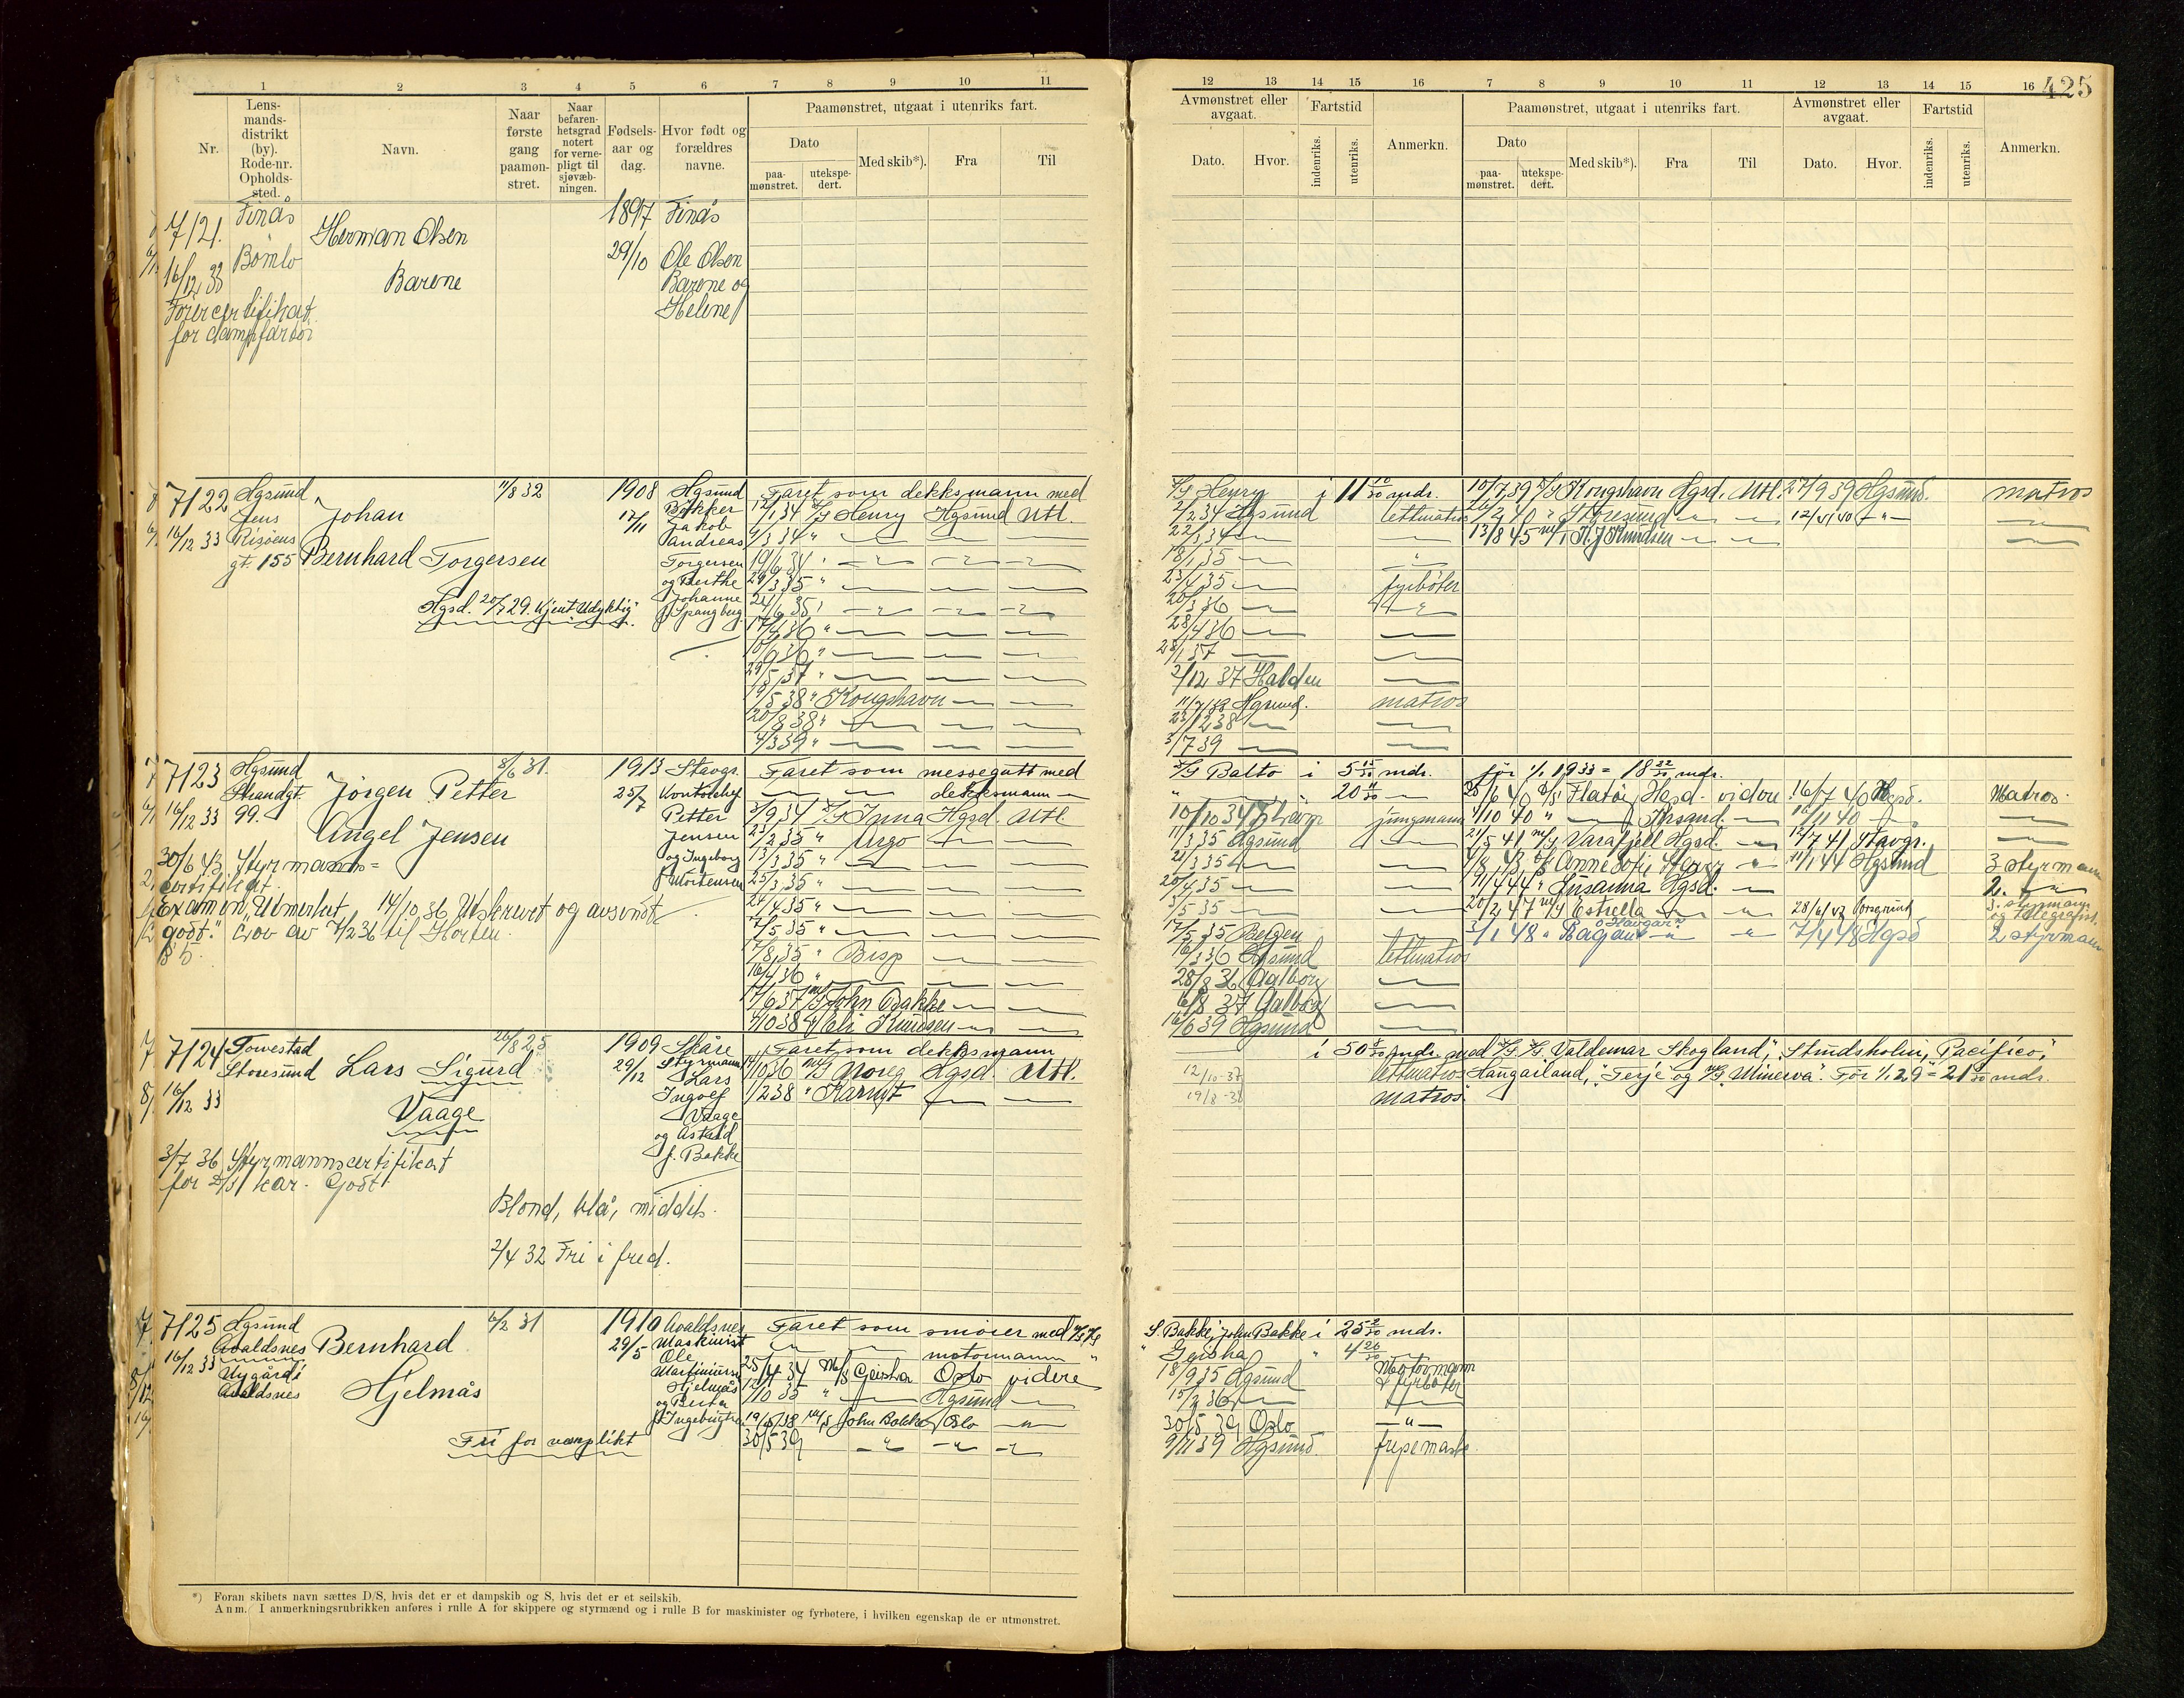 1 2 3 4 5 6 7 8 9 10 11
12 13 14 15 16 7 8 9 10 11 12 13 14 15 16
425
Nr.
Lens-
mands-
distrikt
(by).
Rode-nr.
Opholds-
sted.
Navn.
Naar
første
gang
paamøn-
stret.
Naar
befaren-
hetsgrad
notert
for verne-
pligt til
sjøvæb-
ningen.
Fødsels-
aar og
dag.
Hvor født og
forældres
navne.
Paamønstret, utgaat i utenriks fart.
Dato
paa-
mønstret.
utekspe-
dert.
Med skib*).
Fra
Til
Avmønstret eller
avgaat.
Dato.
Hvor.
Fartstid
indenriks.
utenriks.
Anmerkn.
Paamønstret, utgaat i utenriks fart.
Dato
paa-
mønstret.
utekspe-
dert.
Med skib*).
Fra
Til
Avmønstret eller
avgaat.
Dato.
Hvor.
Fartstid
indenriks.
utenriks.
Anmerkn.
7121.
16/12 33
Finås
Bømlo
Herman Olsen
Barone
1897
29/10
Finås
Ole Olsen
Barone og
Helene
Førercertifikat
for dampfartøi
7122
16/12 33
Hgsund
Jens
Risøens
gt. 155
Johan
Bernhard Torgersen
Hgsd. 20/7 29. Kjent Udyktig
11/8 32
1908
17/11
Hgsund
Jakob
Andreas
Torgersen
og Berthe
Johanne
f. Spangberg
Faret som dekksmann med
12/1 34 D/S Henry Hgsund Utl.
6/3 34 "
19/6 34 "
29/3 35 "
21/6 35 "
17/4 36 "
10/9 36 "
29/5 37 "
19/5 38 " Kongshavn
20/8 38 "
4/3 39 "
D/S Henry i 11 10/30 mdr.
2/2 34 Hgsund lettmatros
22/3 34
18/1 35
23/4 35 fyrbøter
20/3 36
28/4 36
28/1 37
2/12 37 Halden
11/7 38 Hgsund. matros
23/12 38
3/7 39
10/7 39 D/S Kongshavn Hgsd. Utl. 27/9 39 Hgsund. matros
2/2 40 " Storesund 12/4 40
13/8 45 m/s K. J. Knudsen
7123
16/12 33
Hgsund
Strandgt.
99.
Jørgen Petter
Angel Jensen
8/6 31.
1913
25/7
Stavgr.
Kontorchef
Petter
Jensen
og Ingeborg
f. Mortensen
30/6 43 Styrmands=
certifikat
Examen "Utmerket 14/10 36 Utskrevet og avsendt
godt." Crov av 7/2 36 til Horten.
Faret som messegutt med
dekksmann
3/9 34 D/S Inna Hgsd. Utl.
23/2 35 " Argo
13/3 35 "
25/3 35 "
24/4 35 "
7/5 35 "
17/8 35 " Bisp
16/4 36 "
17/6 37 m/s John Bakke
7/10 38 Eli Knudsen
D/S Balto i 5 15/30 mdr.
20 11/30
10/10 34 jungmann
11/3 35 Hgsund
21/3 35
20/4 35
3/5 35
17/5 35 Bergen
16/3 36 Hgsund lettmatros
28/8 36 Aalborg
6/8 37 Aalborg
16/6 39 Hgsund
før 1/1 1933 = 18 22/30 mdr.
25/6 40 D/S Flatøy Hgsd. videre 16/7 40 Hgsd. Matros
1/10 40 " Krsand. 16/11 40
21/5 41 m/s Varafjell Hgsd. 12/7 41 Stavgr.
Anne Sofie Stavgr. 11/1 44 Hgsund 3 styrmann
11/4 44 " Susanna Hgsd. 2.
20/2 47 m/s Estrella 28/6 47 Porsgrund 3. styrmann
og telegrafist.
3/1 48 " "Havgar" 7/4 48 Hgsd 2 styrmann
7124
16/12 33
Torvestad
Storesund
Lars Sigurd
Vaage
26/8 25
1909
29/12
Skåre
Styrmann
Lars
Ingolf
Vaage
og Astrid
f. Bakke
3/7 36 Styrmannscertifikat
for D/S kar. Godt.
Blond, blå, middels.
2/4 32 Fri i fred.
Faret som dekksmann
14/10 36 m/s Noreg Hgsd. Utl.
1/2 38 " Karmt
i 50 8/30 mdr. med D/S S/S "Valdemar Skogland", Studsholm, Pacifico,
12/10-37 lettmatros Hangarland, "Terje" og m/s "Minerva". Før 1/1 29 = 21 mdr.
19/8-38 matros
7125
16/12 33
Hgsund
Avaldsnes
Nygård i
Avaldsnes
Bernhard
Hjelmås
Fri for vernplikt
6/2 31
1910
29/5
Avaldsnes
Maskinist
Ole
Martinius
Hjelmås
og Berta
f. Ingebrigtsen
Faret som smører med m/s
motormann "
25/4 34 M/S Geisha Oslo videre
12/10 35 " Hgsund
19/5 38 m/s John Bakke Oslo
30/5 39
S. Bakke, John Bakke i 25 2/30 mdr.
" Geisha " 4 26/30
18/9 35 Hgsund Motormann
& fyrbøter
15/2 36
30/5 39 Oslo
9/11 39 Hgsund
*) Foran skibets navn sættes D/S, hvis det er et dampskib og S, hvis det er et seilskib.
Anm. I anmerkningsrubrikken anføres i rulle A for skippere og styrmænd og i rulle B for maskinister og fyrbøtere, i hvilken egenskap de er utmønstret.